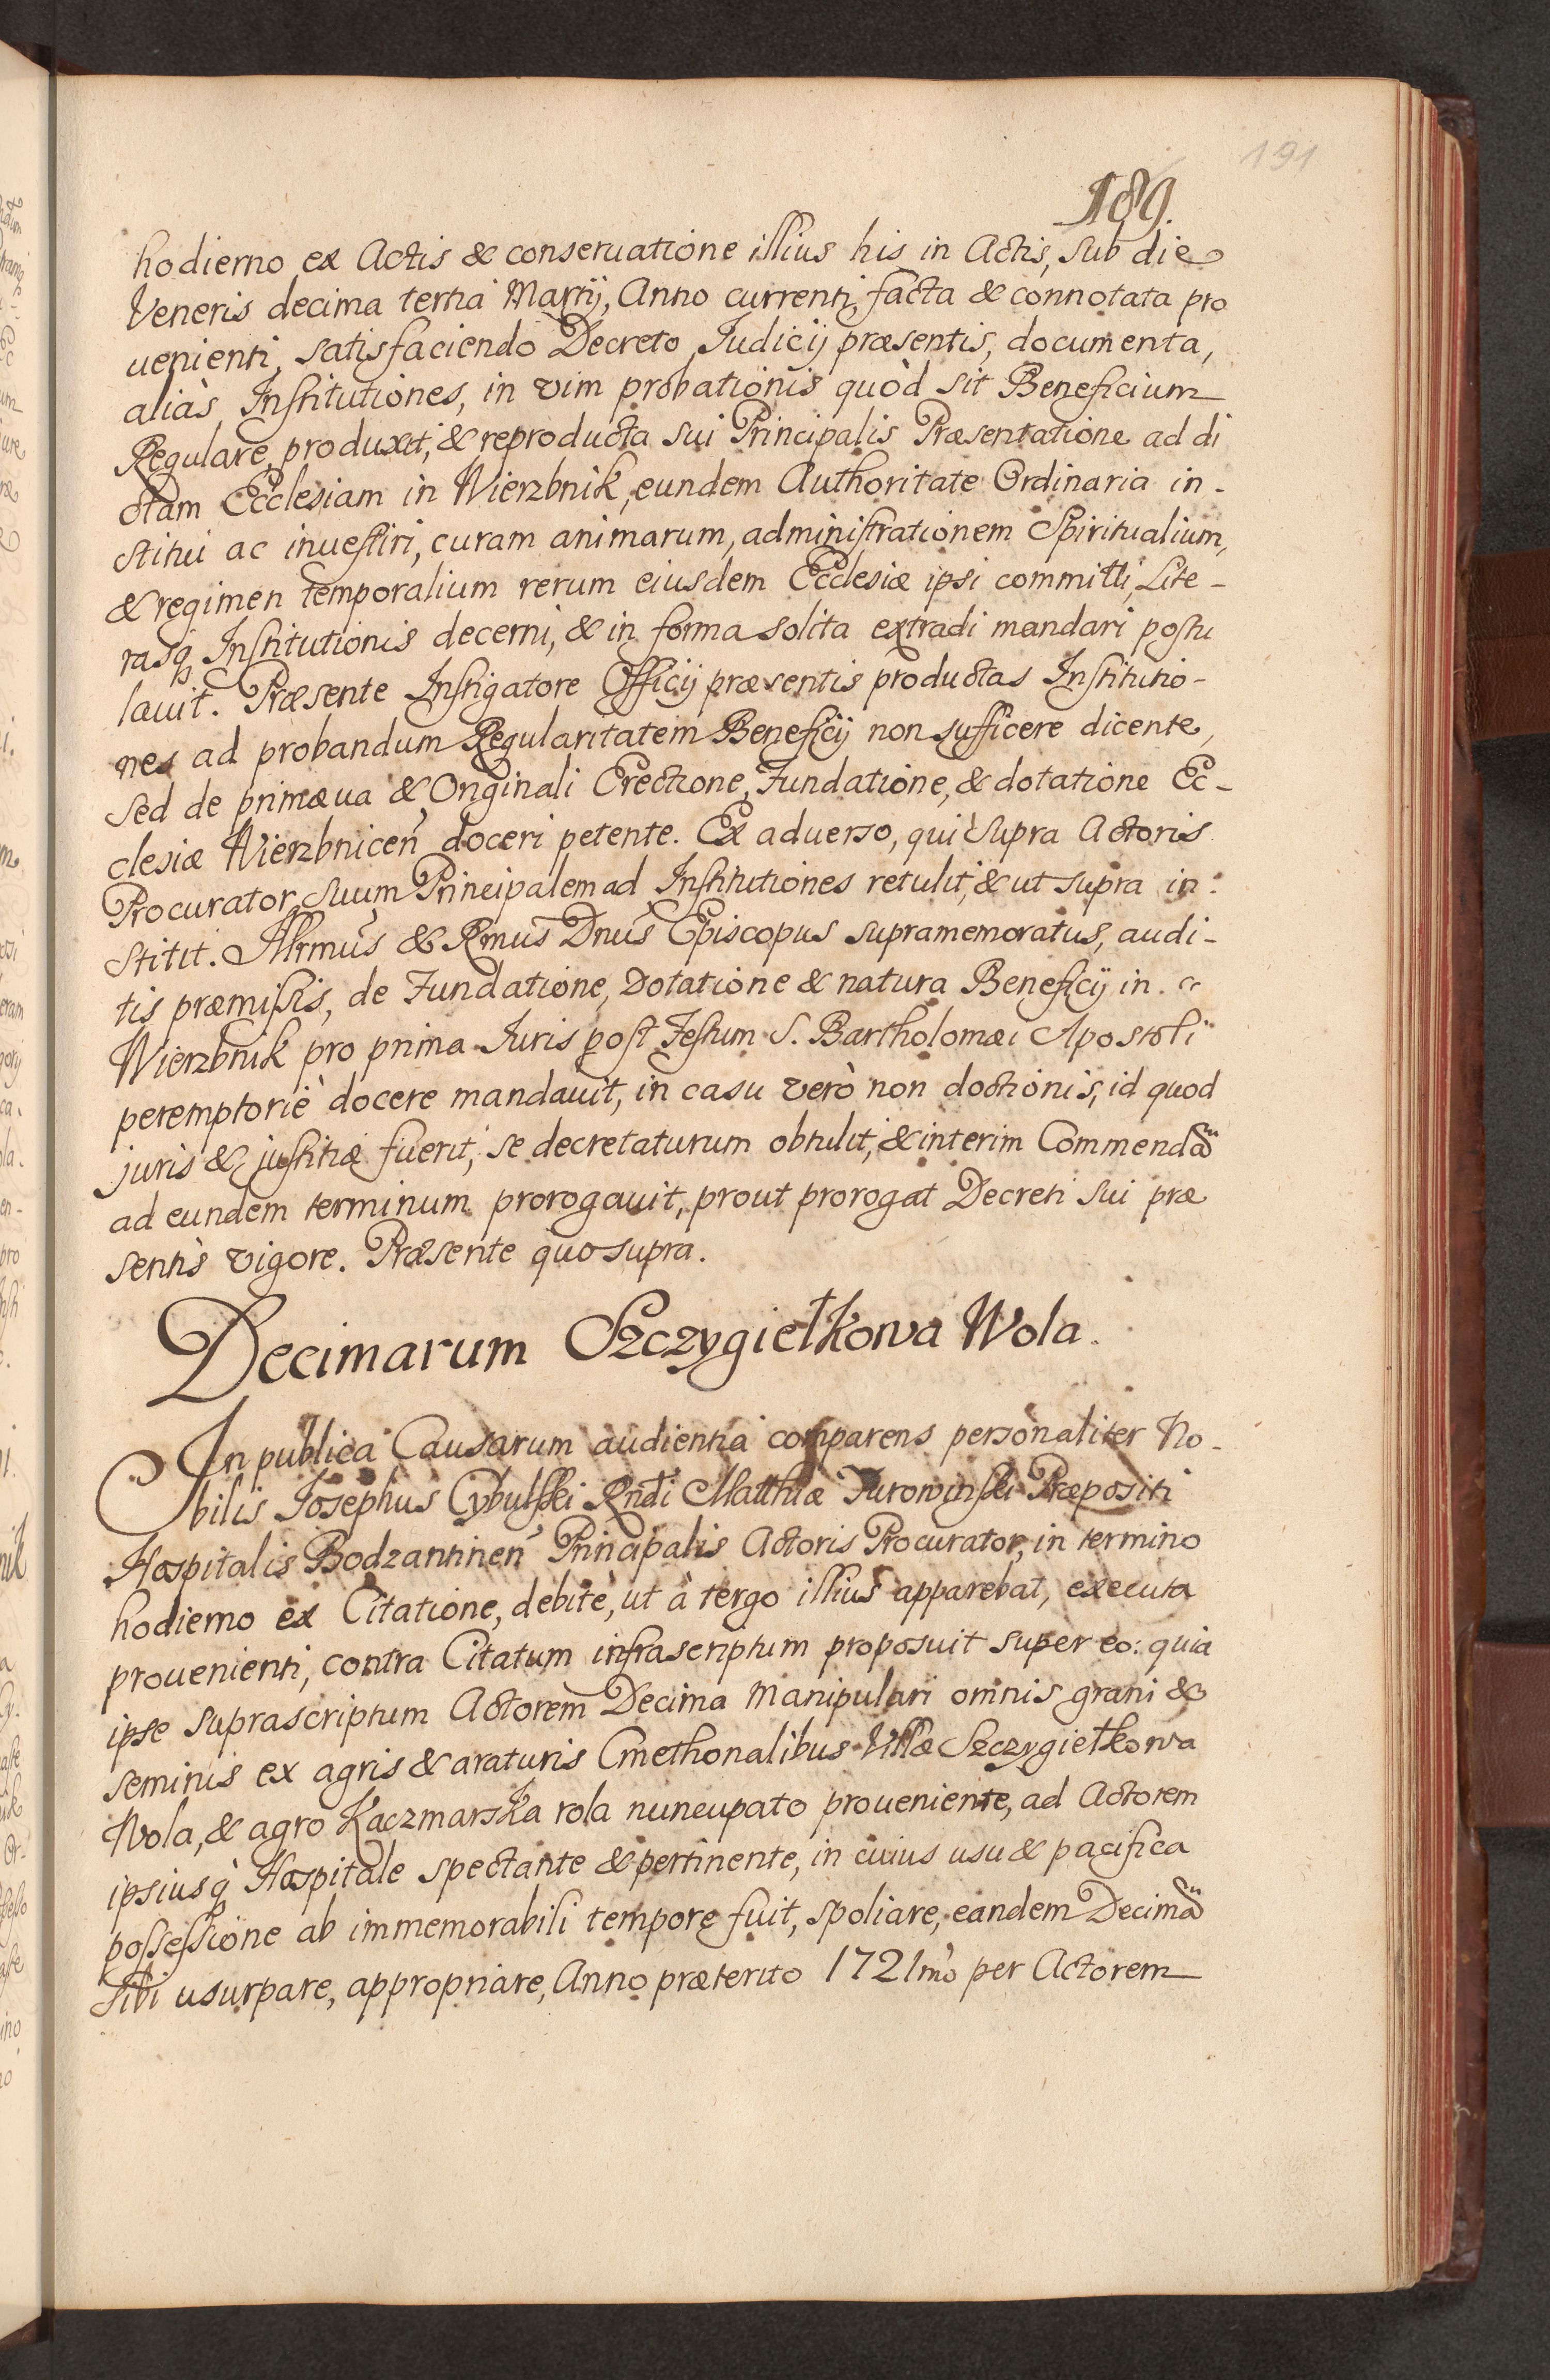 191
189.
hodierno ex Actis & conseruatione illius his in Actis, sub die
Veneris decima tertia Martij, Anno currenti facta & connotata pro
uenienti, satisfaciendo Decreto Iudicij præsentis, documenta,
aliàs Institutiones, in vim probationis quòd sit Beneficium
Regulare, produxit, & reproducta sui Principalis Præsentatione ad di
ctam Ecclesiam in Wierzbnik, eundem Authoritate Ordinaria in-
stitui ac inuestiri, curam animarum, administrationem Spiritualium,
& regimen temporalium rerum eiusdem Ecclesiæ ipsi committi, Lite-
rasq Institutionis decerni, & in forma solita extradi mandari postu
lauit. Præsente Instigatore Officij præsentis productas Institutio-
nes ad probandum Regularitatem Beneficij non sufficere dicente,
sed de primæua & Originali Erectione, Fundatione, & dotatione Ec-
clesiæ Wierzbnicen̄ doceri petente. Ex aduerso, qui supra Actoris
Procurator suum Principalem ad Institutiones retulit, & ut supra in:
stitit. Illrmus & Rmus Dnus Episcopus supramemoratus, audi-
tis præmissis, de Fundatione, Dotatione & natura Beneficij in
Wierzbnik pro prima Iuris post Festum S. Bartholomæi Apostoli
peremptoriè docere mandauit, in casu verò non doctionis, id quod
juris & justitiæ fuerit, se decretaturum obtulit, & interim Commendã
ad eundem terminum prorogauit, prout prorogat Decreti sui præ
sentis vigore. Præsente quo supra.
Decimarum Szczygiełkowa Wola.
In publica Causarum audientia comparens personaliter No-
bilis Iosephus Cybulski Rndi Matthiæ Jurowinski Præpositi
Hospitalis Bodzantinen̄ Principalis Actoris Procurator, in termino
hodierno ex Citatione, debitè, ut à tergo illius apparebat, executa
prouenienti, contra Citatum infrascriptum proposuit super eo: quia
ipse suprascriptum Actorem Decima Manipulari omnis grani &
seminis ex agris & araturis Cmethonalibus Villæ Szczygiełkowa
Wola, & agro Kaczmarska rola nuncupato proueniente, ad Actorem
ipsiusq̀ Hospitale spectante & pertinente, in cuius usu & pacifica
possessione ab immemorabili tempore fuit, spoliare, eandem Decimã
sibi usurpare, appropriare, Anno præterito 1721mo per Actorem